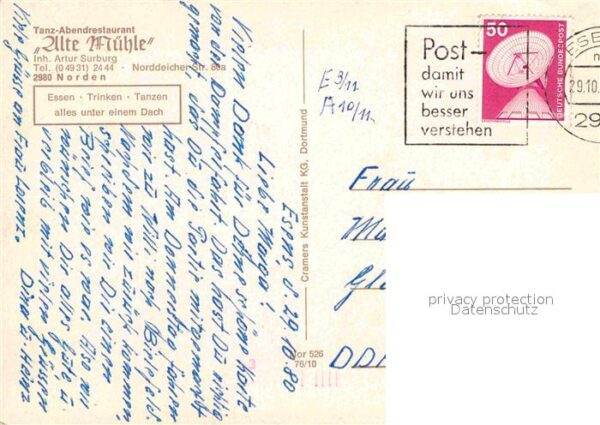 Tanz-Abendrestaurant
„Alte Mühle"
Inh. Artur Surburg
Tel. (0 49 31) 24 44 · Norddeicher Str. 86a
2980 Norden
Essen · Trinken · Tanzen
alles unter einem Dach
Esens, d. 29.10.80
Liebe Marga!
Vielen Dank für Deine schöne Karte
von der Dampferfahrt. Das hast Du richtig
gemacht, daß Du die Tour mitgemacht
hast. Am Donnerstag fahren
wir zu Willi nach Bielefeld.
Nachdem wir zurück kommen,
schreiben wir Dir einen
Brief, wie es war. Also wir
wünschen Dir alles Gute u.
verbleib mit vielen Grüssen
Dina u. Heinz
Viele Grüsse an Frau Lorenz.
Cramers Kunstanstalt KG, Dortmund
Nor 526
76/10
E 3/11
A 10/11
Post-
damit
wir uns
besser
verstehen
50
DEUTSCHE BUNDESPOST
29.10.
Frau
Ma
Gl
DDR
privacy protection
Datenschutz